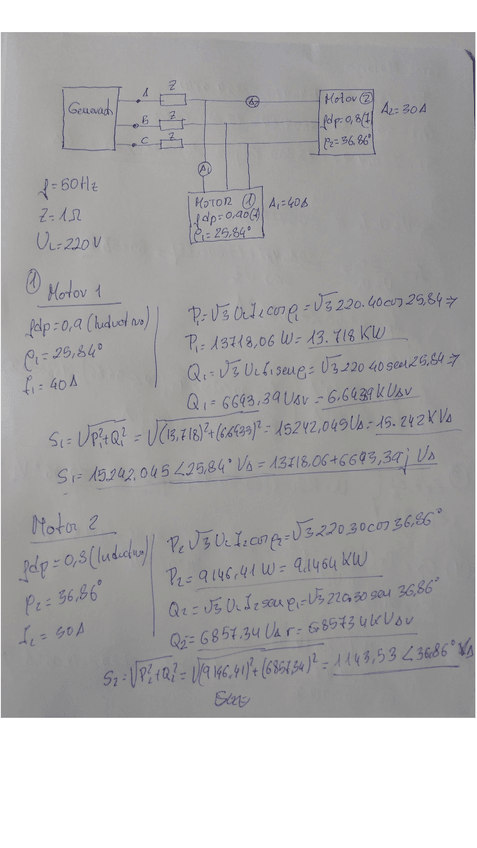 A Z
Generador
B Z
C Z
A2
Motor ②
fdp=0,8(I)
φ2=36,86°
A2=30A
A1
MOTOR ①
fdp=0,90(I)
φ1=25,84°
A1=40A
f=50Hz
Z=1Ω
UL=220V
① Motor 1
fdp=0,9 (Inductivo)
φ1=25,84°
I1=40A
P1=√3 UL I1 cosφ1=√3 220.40 cos 25,84 =>
P1=13718,06 W = 13.718 KW
Q1=√3 UL I1 senφ1=√3 220 40 sen 25,84 =>
Q1=6643,39 UAr = 6.6439 KUAr
S1=√P1²+Q1² = √(13,718)²+(6.6433)² = 15242,045 UA = 15.242 KVA
S1=15242,045 ∠25,84° UA = 13718,06+6643,39j UA
Motor 2
fdp=0,8 (Inductivo)
φ2=36,86°
I2=30A
P2 √3 UL I2 cosφ2=√3 220 30 cos 36,86°
P2=9146,41 W = 9.1464 KW
Q2=√3 UL I2 senφ1=√3.220.30 sen 36,86°
Q2=6857,34 UAr = 6.85734 KUAr
S2=√P2²+Q2² = √(9146,41)²+(6857,34)² = 1143,53 ∠36.86° VA